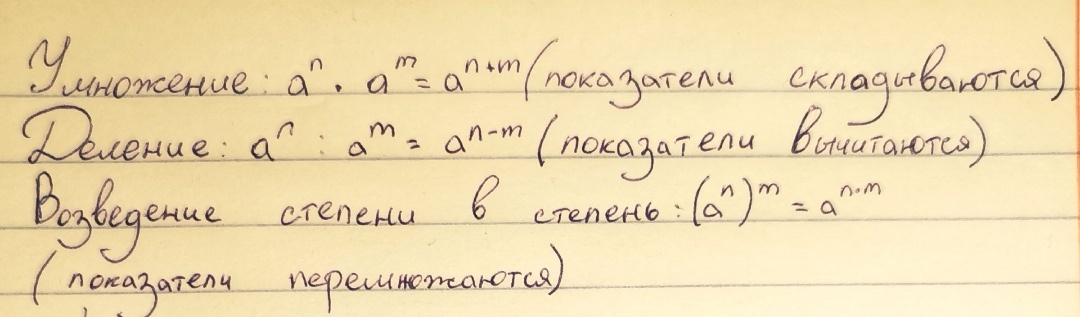 Умножение: aⁿ · aᵐ = aⁿ⁺ᵐ (показатели складываются)
Деление: aⁿ : aᵐ = aⁿ⁻ᵐ (показатели вычитаются)
Возведение степени в степень: (aⁿ)ᵐ = aⁿ·ᵐ
(показатели перемножаются)